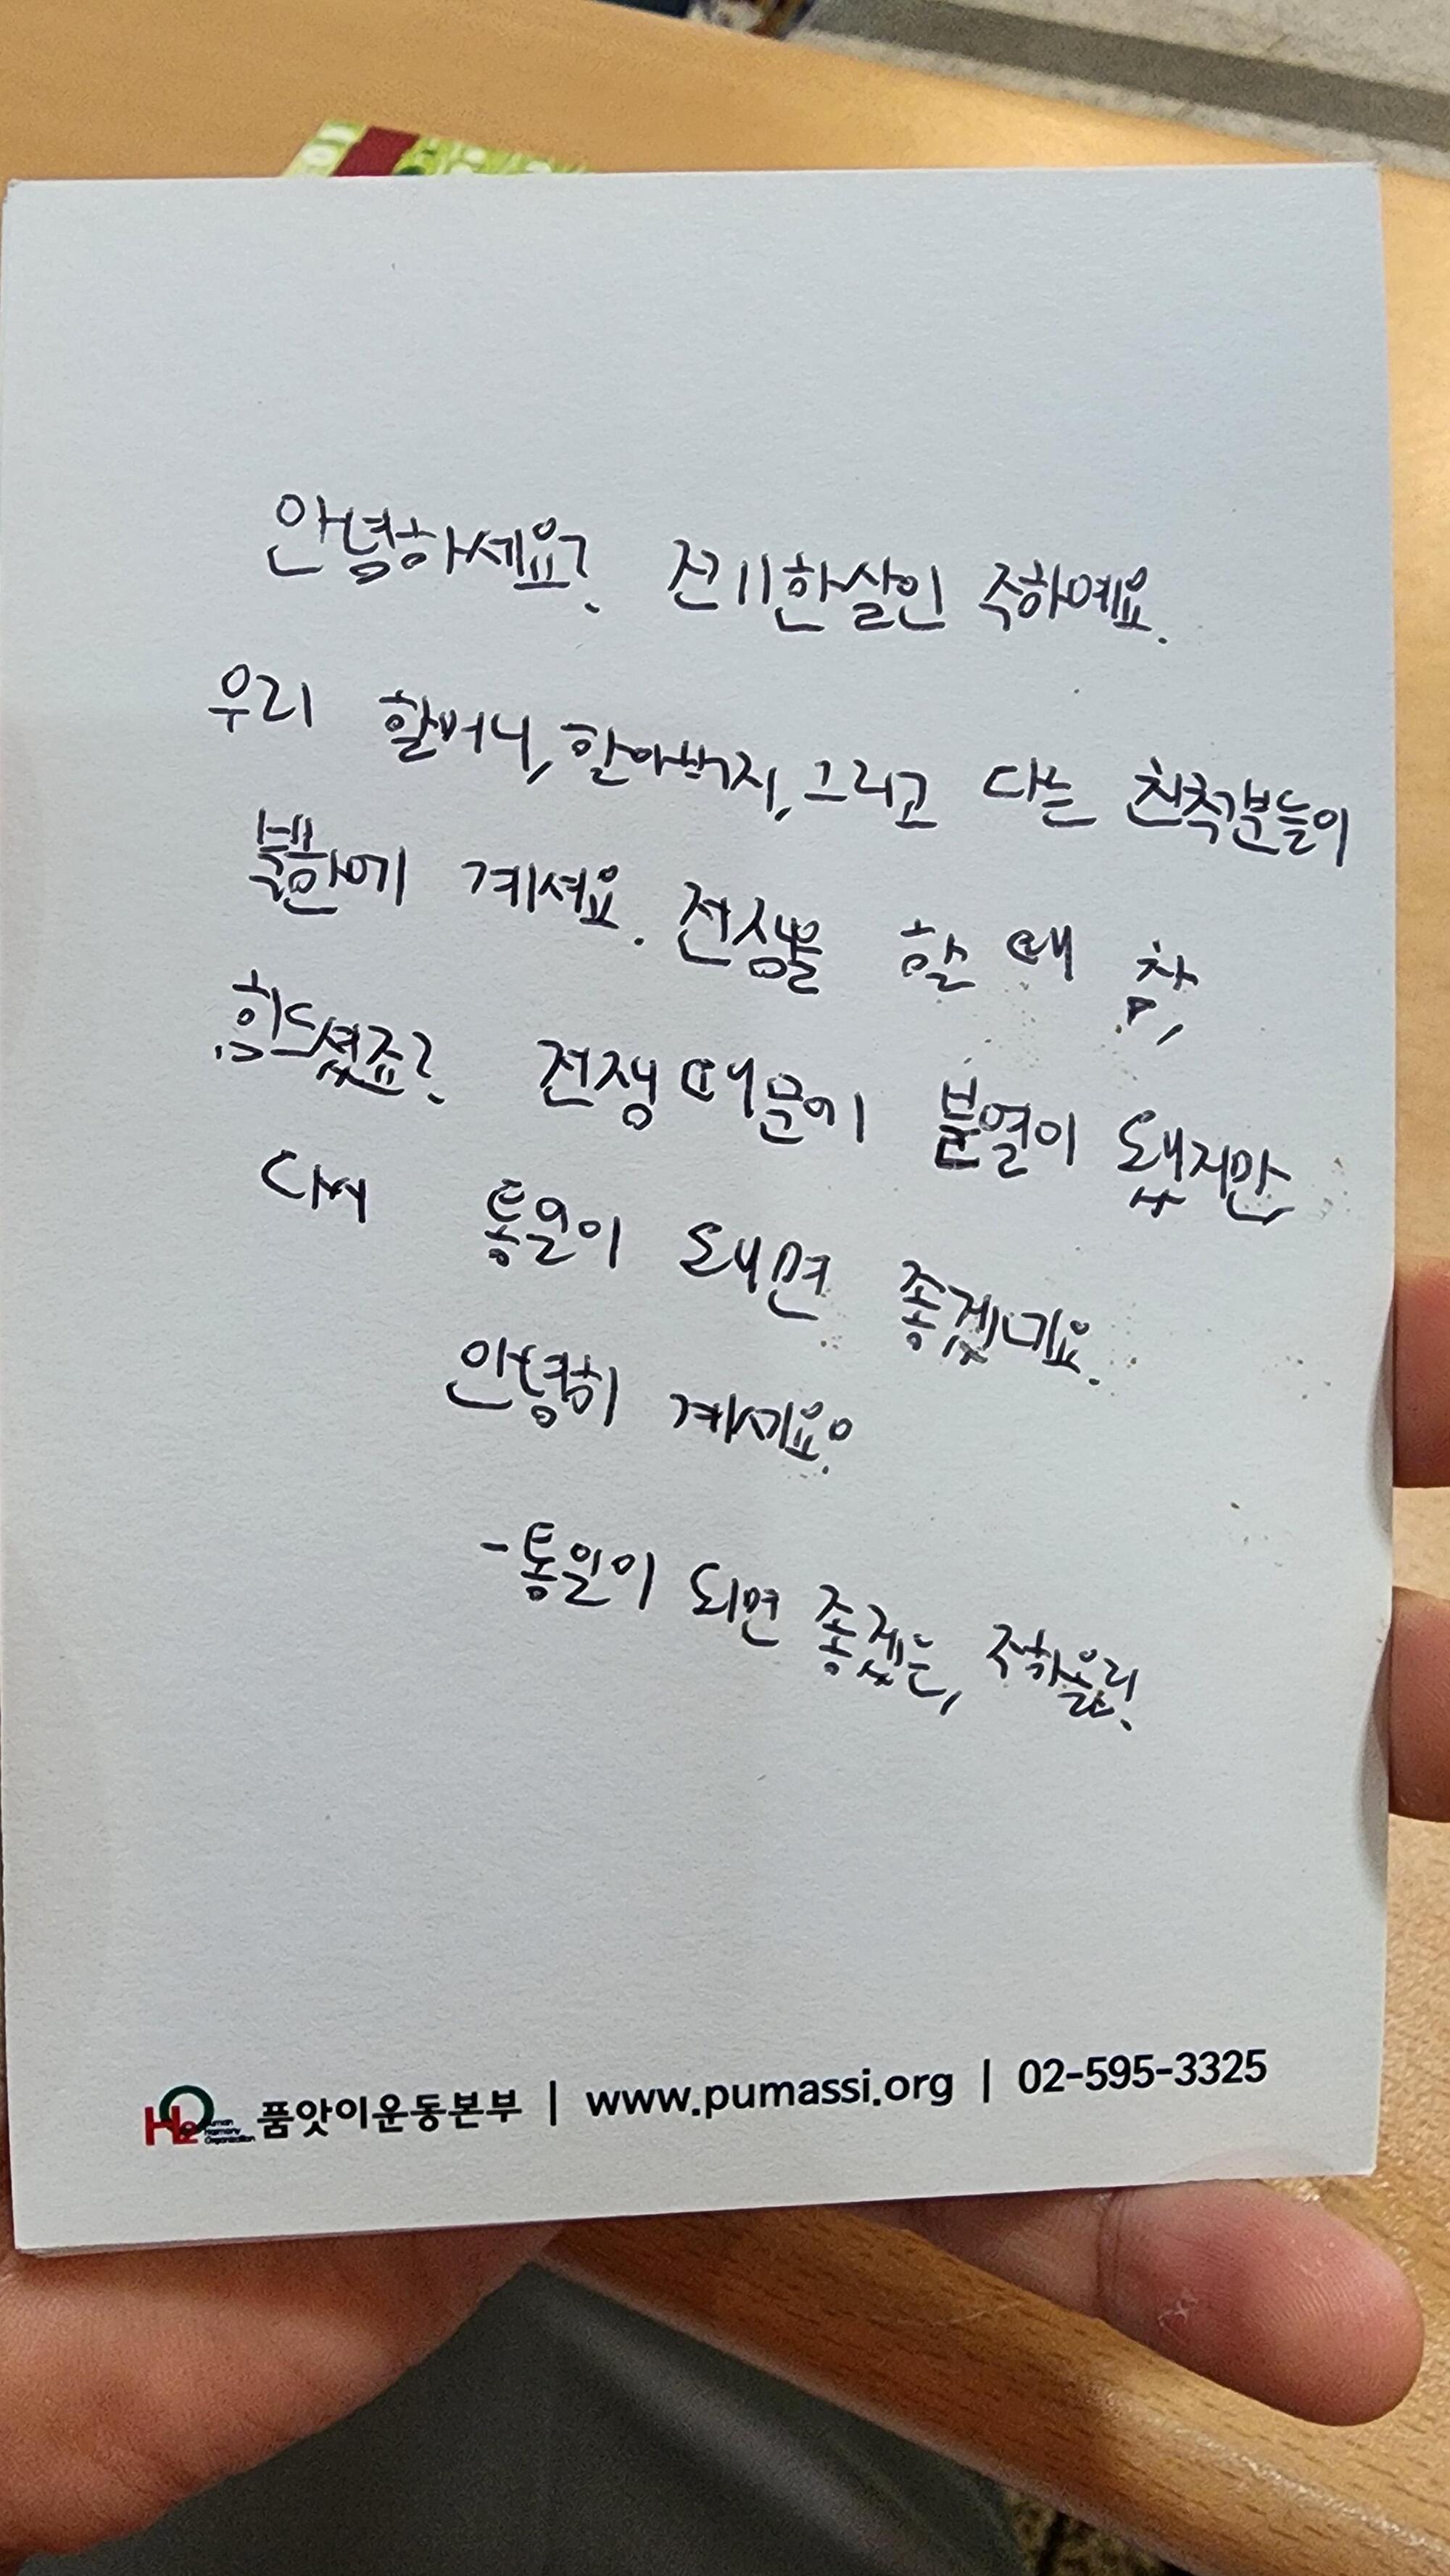 안녕하세요? 전 11한살인 주하예요.
우리 할머니, 할아버지, 그리고 다는 친척분들이
북한에 계셔요. 전쟁을 할 때 참,
힘드셨죠? 전쟁 때문에 분열이 됐지만
다시 통일이 돼면 좋겠네요.
안녕히 계세요.
-통일이 되면 좋겠는, 주하올림.
품앗이운동본부 | www.pumassi.org | 02-595-3325